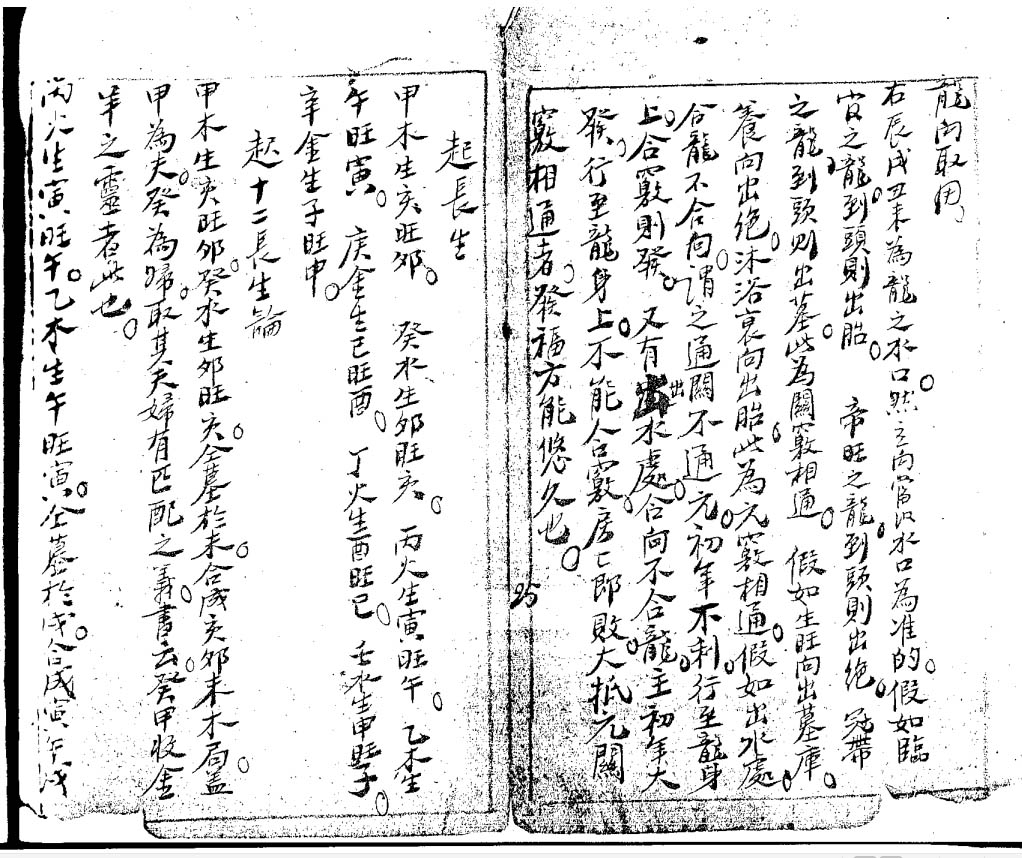 龍向取用
右辰戌丑未為龍之水口然立向當以水口為准的假如臨
官之龍到頭則出胎　帝旺之龍到頭則出絶　冠帶
之龍到頭則出墓此為關竅相通　假如生旺向出墓庫
養向出絶沐浴衰向出胎此為元竅相通假如出水處
合龍不合向謂之通關不通元初年不利行至龍身
上合竅則發　又有出水處合向不合龍主初年大
發行至龍身上不能合竅房房即敗大抵元關
竅相通者發福方能悠久也
25
起長生
甲木生亥旺卯　癸水生卯旺亥　丙火生寅旺午　乙木生
午旺寅　庚金生巳旺酉　丁火生酉旺巳　壬水生申旺子
辛金生子旺申
起十二長生論
甲木生亥旺卯癸水生卯旺亥仝墓於未合成亥卯未木局盖
甲為夫癸為婦取其夫婦有匹配之義書云癸甲收金
羊之靈者此也
丙火生寅旺午乙木生午旺寅仝墓於戌合成寅午戌